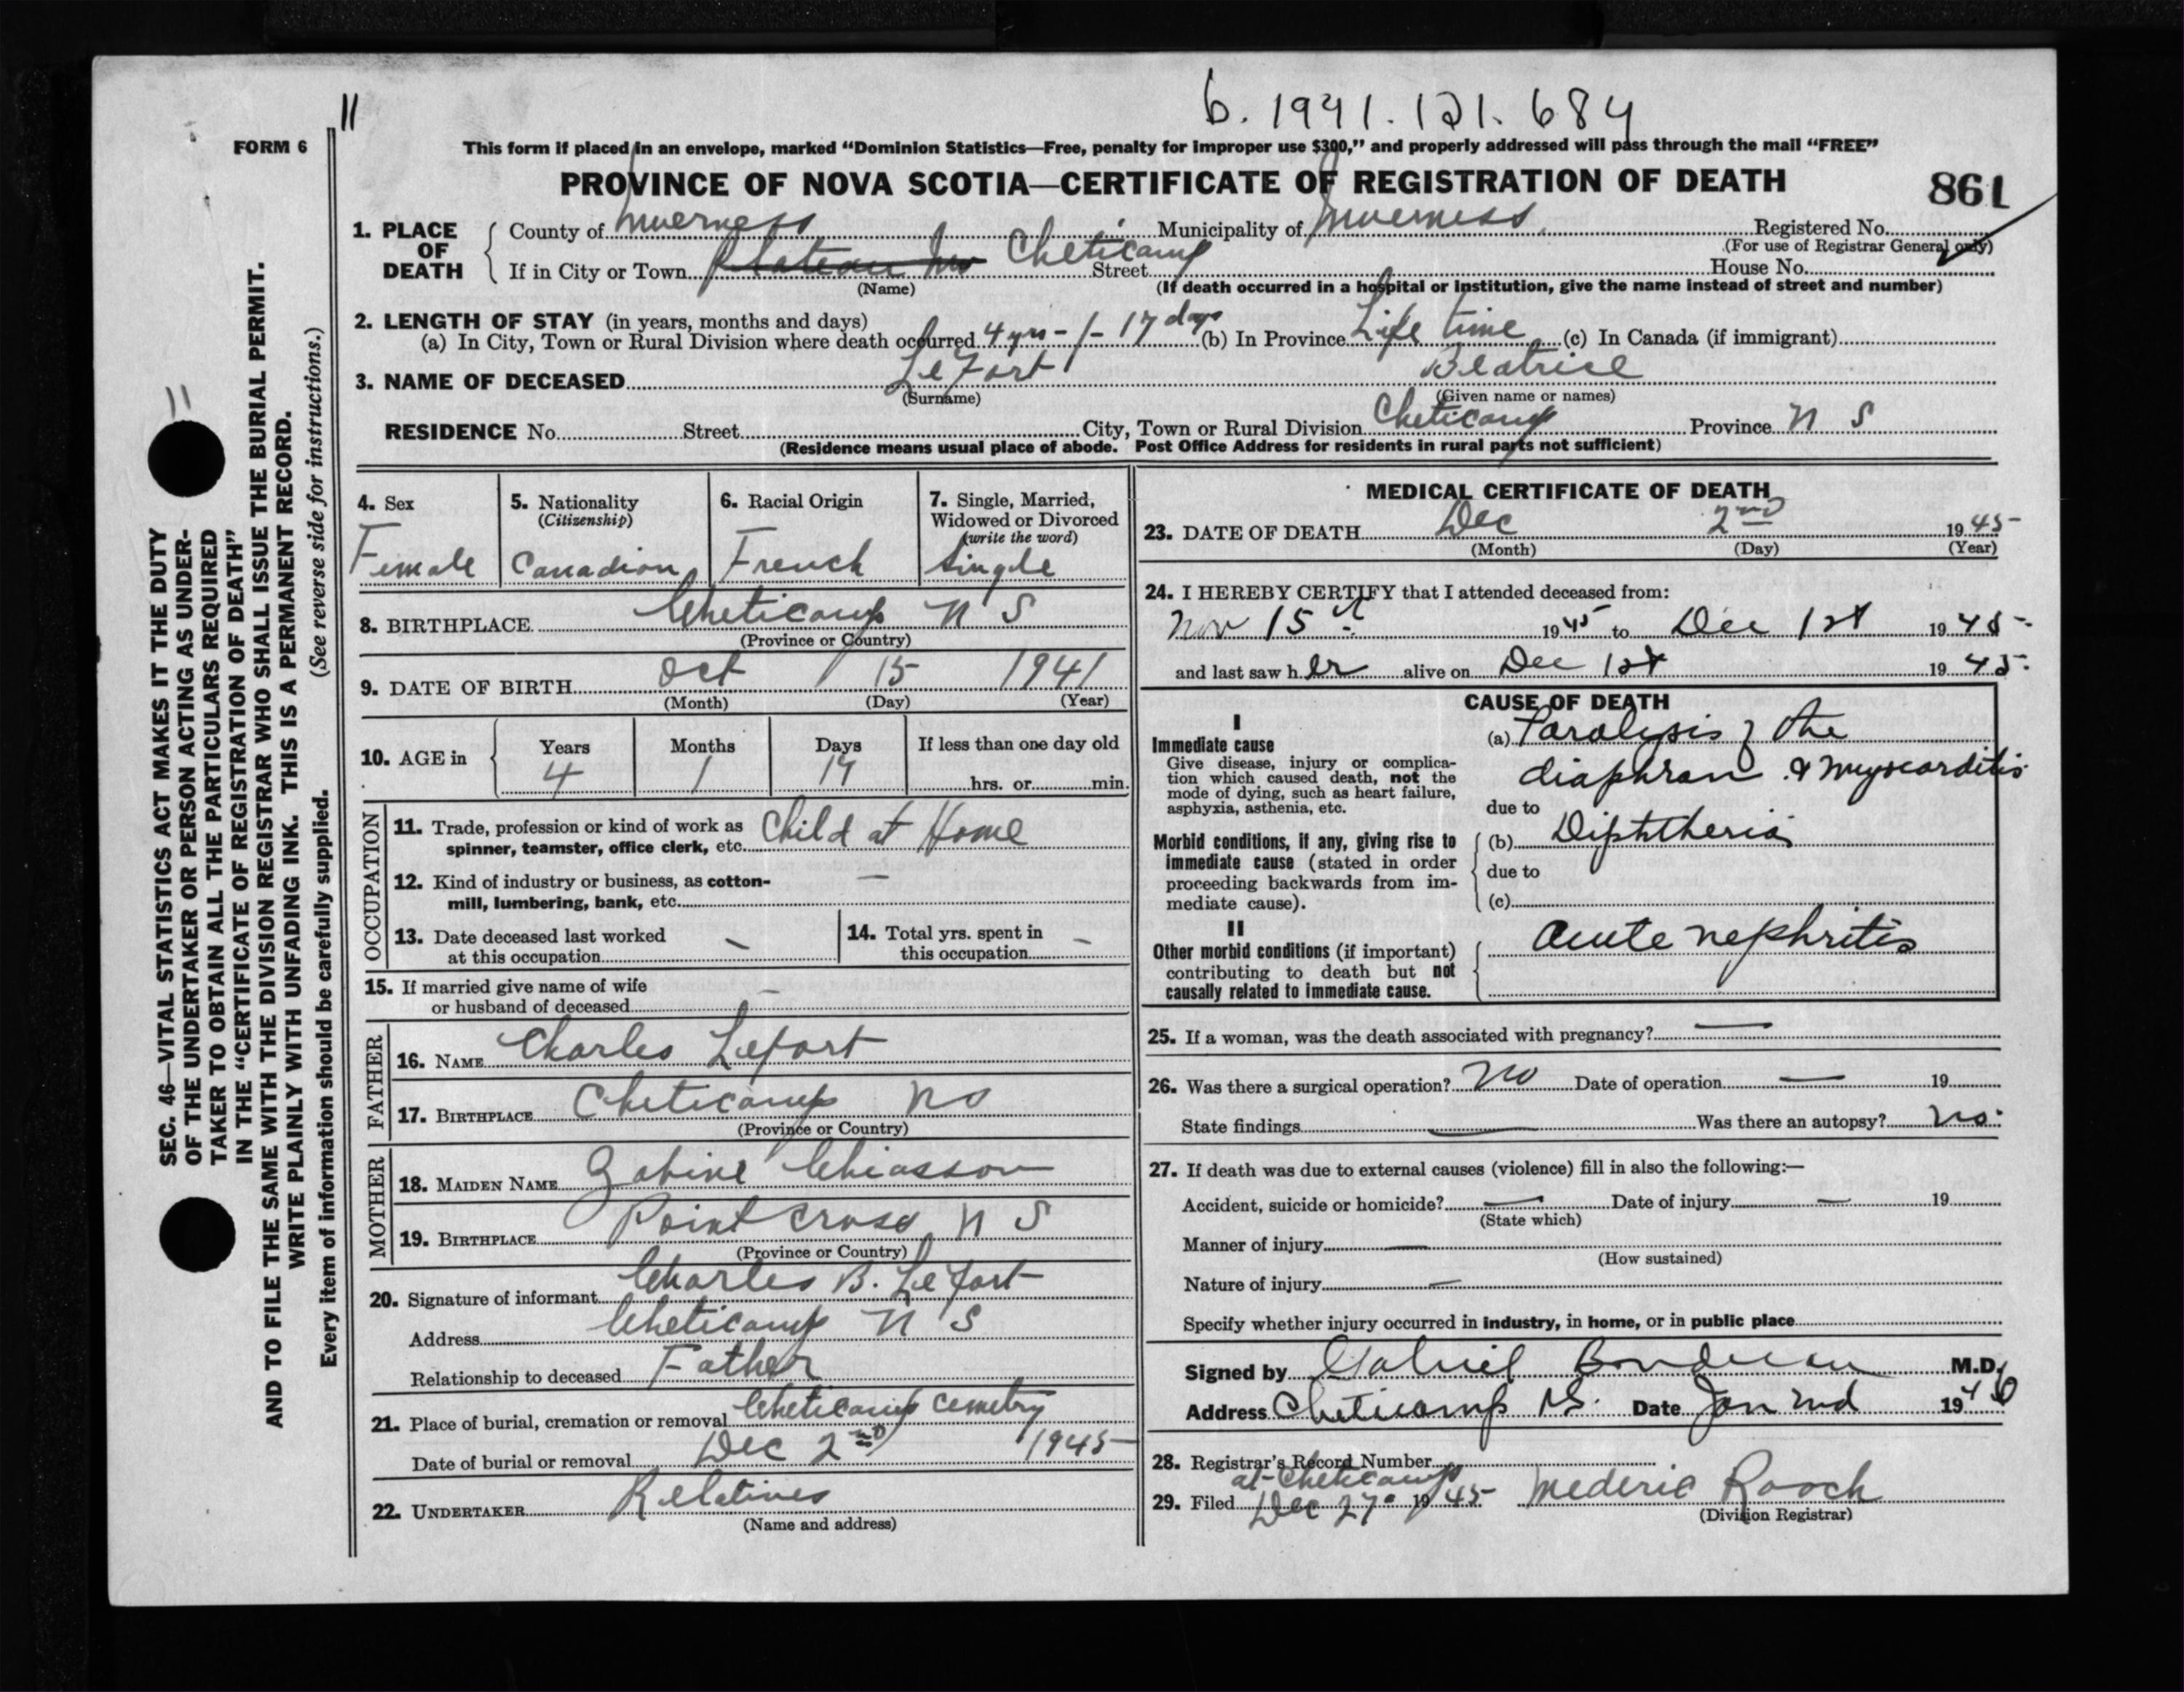 11
b. 1941. 121. 684
FORM 6
This form if placed in an envelope, marked “Dominion Statistics—Free, penalty for improper use $300,” and properly addressed will pass through the mail “FREE”
PROVINCE OF NOVA SCOTIA—CERTIFICATE OF REGISTRATION OF DEATH
861
1. PLACE OF DEATH
County of Inverness Municipality of Inverness Registered No.
(For use of Registrar General only)
If in City or Town Plateau Cheticamp Street House No.
(Name) (If death occurred in a hospital or institution, give the name instead of street and number)
2. LENGTH OF STAY (in years, months and days)
(a) In City, Town or Rural Division where death occurred 4 yrs - 1 - 17 days (b) In Province Life time (c) In Canada (if immigrant)
3. NAME OF DECEASED LeFort Beatrice
(Surname) (Given name or names)
RESIDENCE No. Street City, Town or Rural Division Cheticamp Province N S
(Residence means usual place of abode. Post Office Address for residents in rural parts not sufficient)
4. Sex
Female
5. Nationality
(Citizenship)
Canadian
6. Racial Origin
French
7. Single, Married,
Widowed or Divorced
(write the word)
Single
8. BIRTHPLACE Cheticamp N S
(Province or Country)
9. DATE OF BIRTH Oct 15 1941
(Month) (Day) (Year)
10. AGE in
Years Months Days If less than one day old
4 1 17 hrs. or min.
OCCUPATION
11. Trade, profession or kind of work as
spinner, teamster, office clerk, etc. Child at Home
12. Kind of industry or business, as cotton-
mill, lumbering, bank, etc. —
13. Date deceased last worked
at this occupation –
14. Total yrs. spent in
this occupation –
15. If married give name of wife
or husband of deceased –
FATHER
16. NAME Charles Lefort
17. BIRTHPLACE Cheticamp NS
(Province or Country)
MOTHER
18. MAIDEN NAME Zabine Chiasson
19. BIRTHPLACE Point Cross N S
(Province or Country)
20. Signature of informant Charles B. LeFort
Address Cheticamp N S
Relationship to deceased Father
21. Place of burial, cremation or removal Cheticamp Cemetry
Date of burial or removal Dec 2nd 1945
22. UNDERTAKER Relatives
(Name and address)
MEDICAL CERTIFICATE OF DEATH
23. DATE OF DEATH Dec 2nd 1945
(Month) (Day) (Year)
24. I HEREBY CERTIFY that I attended deceased from:
Nov 15th 1945 to Dec 1st 1945
and last saw her alive on Dec 1st 1945
CAUSE OF DEATH
I
Immediate cause
Give disease, injury or complica-
tion which caused death, not the
mode of dying, such as heart failure,
asphyxia, asthenia, etc.
(a) Paralysis of the
diaphram & myocarditis
due to
Morbid conditions, if any, giving rise to
immediate cause (stated in order
proceeding backwards from im-
mediate cause).
(b) Diphtheria
due to
(c)
II
Other morbid conditions (if important)
contributing to death but not
causally related to immediate cause.
acute nephritis
25. If a woman, was the death associated with pregnancy? —
26. Was there a surgical operation? No Date of operation — 19
State findings — Was there an autopsy? No.
27. If death was due to external causes (violence) fill in also the following:—
Accident, suicide or homicide? — Date of injury — 19
(State which)
Manner of injury —
(How sustained)
Nature of injury —
Specify whether injury occurred in industry, in home, or in public place
Signed by Gabriel Boudreau M.D.
Address Cheticamp N.S. Date Jan 2nd 1946
28. Registrar's Record Number
at Cheticamp
29. Filed Dec 27 1945 Mederic Roach
(Division Registrar)
11
SEC. 46—VITAL STATISTICS ACT MAKES IT THE DUTY
OF THE UNDERTAKER OR PERSON ACTING AS UNDER-
TAKER TO OBTAIN ALL THE PARTICULARS REQUIRED
IN THE “CERTIFICATE OF REGISTRATION OF DEATH”
AND TO FILE THE SAME WITH THE DIVISION REGISTRAR WHO SHALL ISSUE THE BURIAL PERMIT.
WRITE PLAINLY WITH UNFADING INK. THIS IS A PERMANENT RECORD.
Every item of information should be carefully supplied. (See reverse side for instructions.)